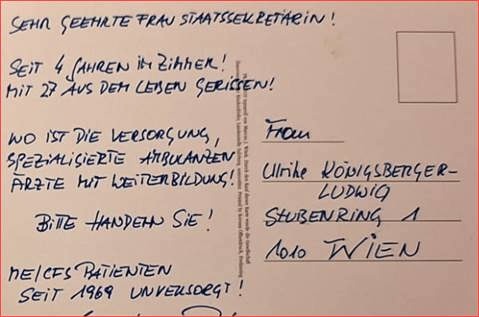 SEHR GEEHRTE FRAU STAATSSEKRETÄRIN!
SEIT 4 JAHREN IM ZIMMER!
MIT 27 AUS DEM LEBEN GERISSEN!
WO IST DIE VERSORGUNG,
SPEZIALISIERTE AMBULANZEN
ÄRZTE MIT WEITERBILDUNG!
BITTE HANDELN SIE!
ME/CFS PATIENTEN
SEIT 1969 UNVERSORGT!
Frau
Ulrike KÖNIGSBERGER-
LUDWIG
STUBENRING 1
1010 WIEN